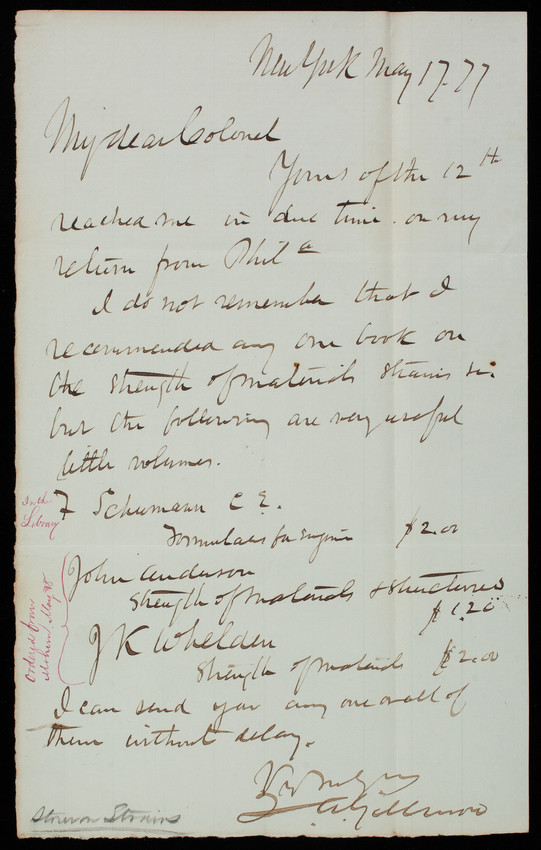 New York May 17. 77
My dear Colonel
Yours of the 12th
reached me in due time on my
return from Phila
I do not remember that I
recommended any one book on
the strength of materials strains &c.
but the following are very useful
little volumes.
In the
Library
F Schumann C E.
Formulaes for Engine $2.00
John Anderson
Strength of materials & structures
$1.20
J K Whelden
Strength of materials $2.00
Ordered from
May 98
I can send you any one or all of
them without delay.
Yrs truly
Q A Gillmore
Stoney on Strains